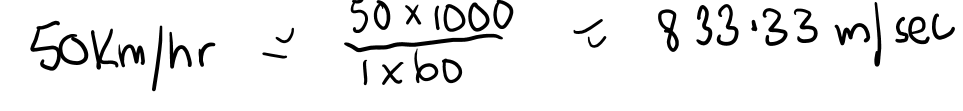 50Km/hr = 50 x 1000 / 1 x 60 = 833.33 m/sec